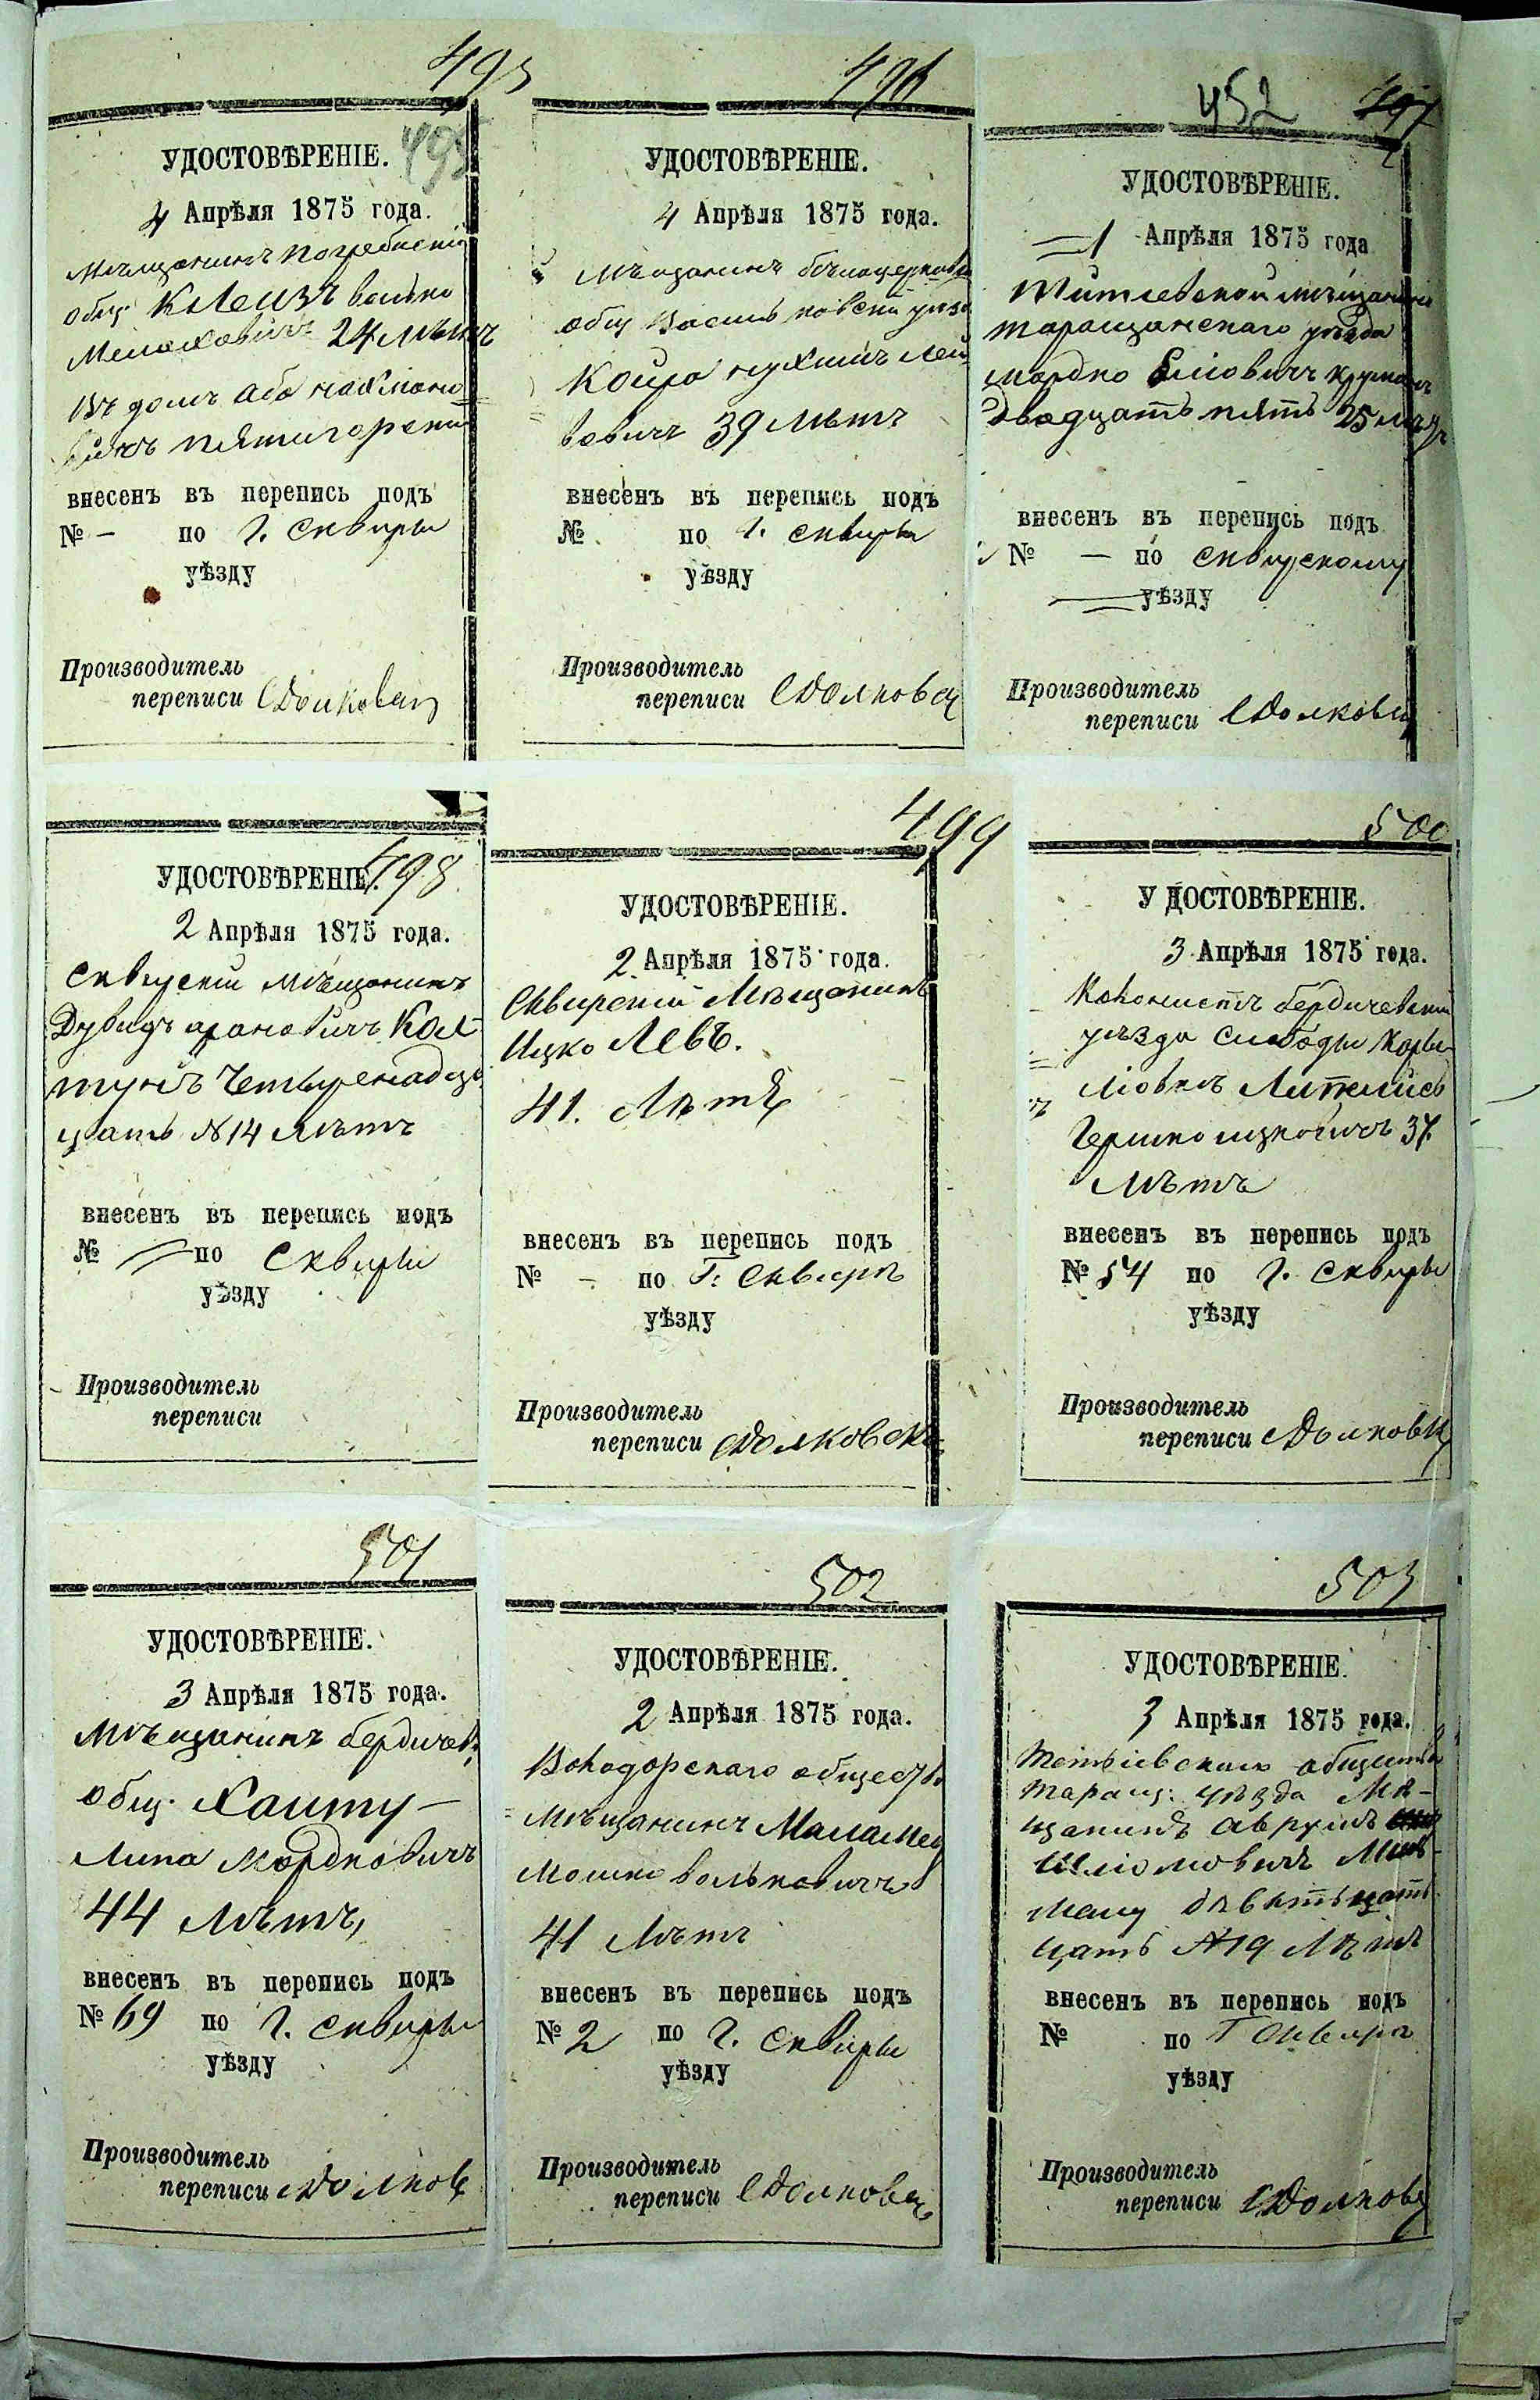 495
495
УДОСТОВѢРЕНІЕ.
4 Апрѣля 1875 года.
Мѣщанинъ Погребискій
общ. Клеизъ Волько
24 лѣтъ
Въ домъ Аба Нахмано
вичъ Пятигорски
внесенъ въ перепись подъ
№ – по г. Сквиры
уѣзду
Производитель
переписи СДолковск
496
УДОСТОВѢРЕНІЕ.
4 Апрѣля 1875 года.
Мѣщанинъ бѣлоцерковск
общ Васильковскій уѣзд
Нухимъ Лей
бовичъ 39 лѣтъ
внесенъ въ перепись подъ
№ по г. Сквиры
уѣзду
Производитель
переписи СДолковск
452 497
УДОСТОВѢРЕНІЕ.
1 Апрѣля 1875 года
мѣщанинъ
таращанскаго уѣзда
Мордко
двадцать пять 25 лѣтъ
внесенъ въ перепись подъ
№ — по Сквирскому
уѣзду
Производитель
переписи СДолковск
498
УДОСТОВѢРЕНІЕ.
2 Апрѣля 1875 года.
Сквирскій мѣщанинъ
Дувидъ Арановичъ Кол
тунъ Четыренадца
цать №14 лѣтъ
внесенъ въ перепись подъ
№ по Сквиры
уѣзду
Производитель
переписи
499
УДОСТОВѢРЕНІЕ.
2 Апрѣля 1875 года.
Сквирскій Мѣщанинъ
Ицко Левъ.
41. Лѣтъ
внесенъ въ перепись подъ
№ – по Г. Сквирѣ
уѣзду
Производитель
переписи СДолковск
500
УДОСТОВѢРЕНІЕ.
3 Апрѣля 1875 года.
Колонистъ бердичевскій
уѣзда Слободы
Гершко Ицковичъ 37.
лѣтъ
внесенъ въ перепись подъ
№ 54 по г. Сквиры
уѣзду
Производитель
переписи СДолковск
501
УДОСТОВѢРЕНІЕ.
3 Апрѣля 1875 года.
Мѣщанинъ бердичев
общ. Хаиту–
Липа Мордковичъ
44 лѣтъ,
внесенъ въ перепись подъ
№ 69 по г. Сквиры
уѣзду
Производитель
переписи СДолков
502
УДОСТОВѢРЕНІЕ.
2 Апрѣля 1875 года.
Володорскаго обществ
мѣщанинъ Маламед
Мошко Вольковичъ
41 лѣтъ
внесенъ въ перепись подъ
№ 2 по г. Сквиры
уѣзду
Производитель
переписи СДолковск
503
УДОСТОВѢРЕНІЕ.
3 Апрѣля 1875 года.
Тетіевскаго общества
Таращ. уѣзда Мѣ–
щанинъ Аврумъ
Шліомовичъ
цать №19 Лѣтъ
внесенъ въ перепись подъ
№ по Г Сквирѣ
уѣзду
Производитель
переписи СДолковск